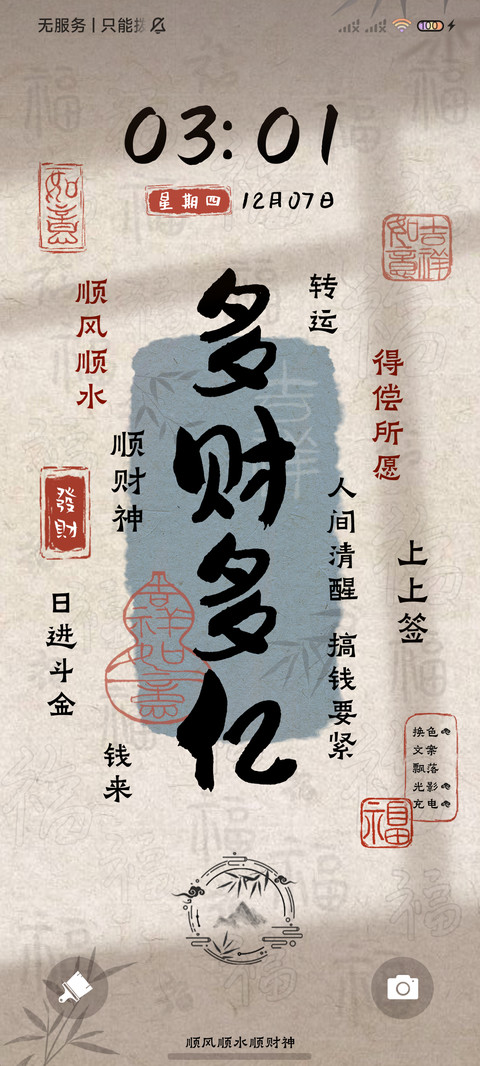 无服务 | 只能拨
100
03:01
星期四 12月07日
如意
吉祥如意
顺风顺水
转运
多财多亿
得偿所愿
顺财神
吉祥
發财
人间清醒 搞钱要紧
上上签
日进斗金
吉祥如意
钱来
换色
文案
飘落
光影
充电
福
顺风顺水顺财神